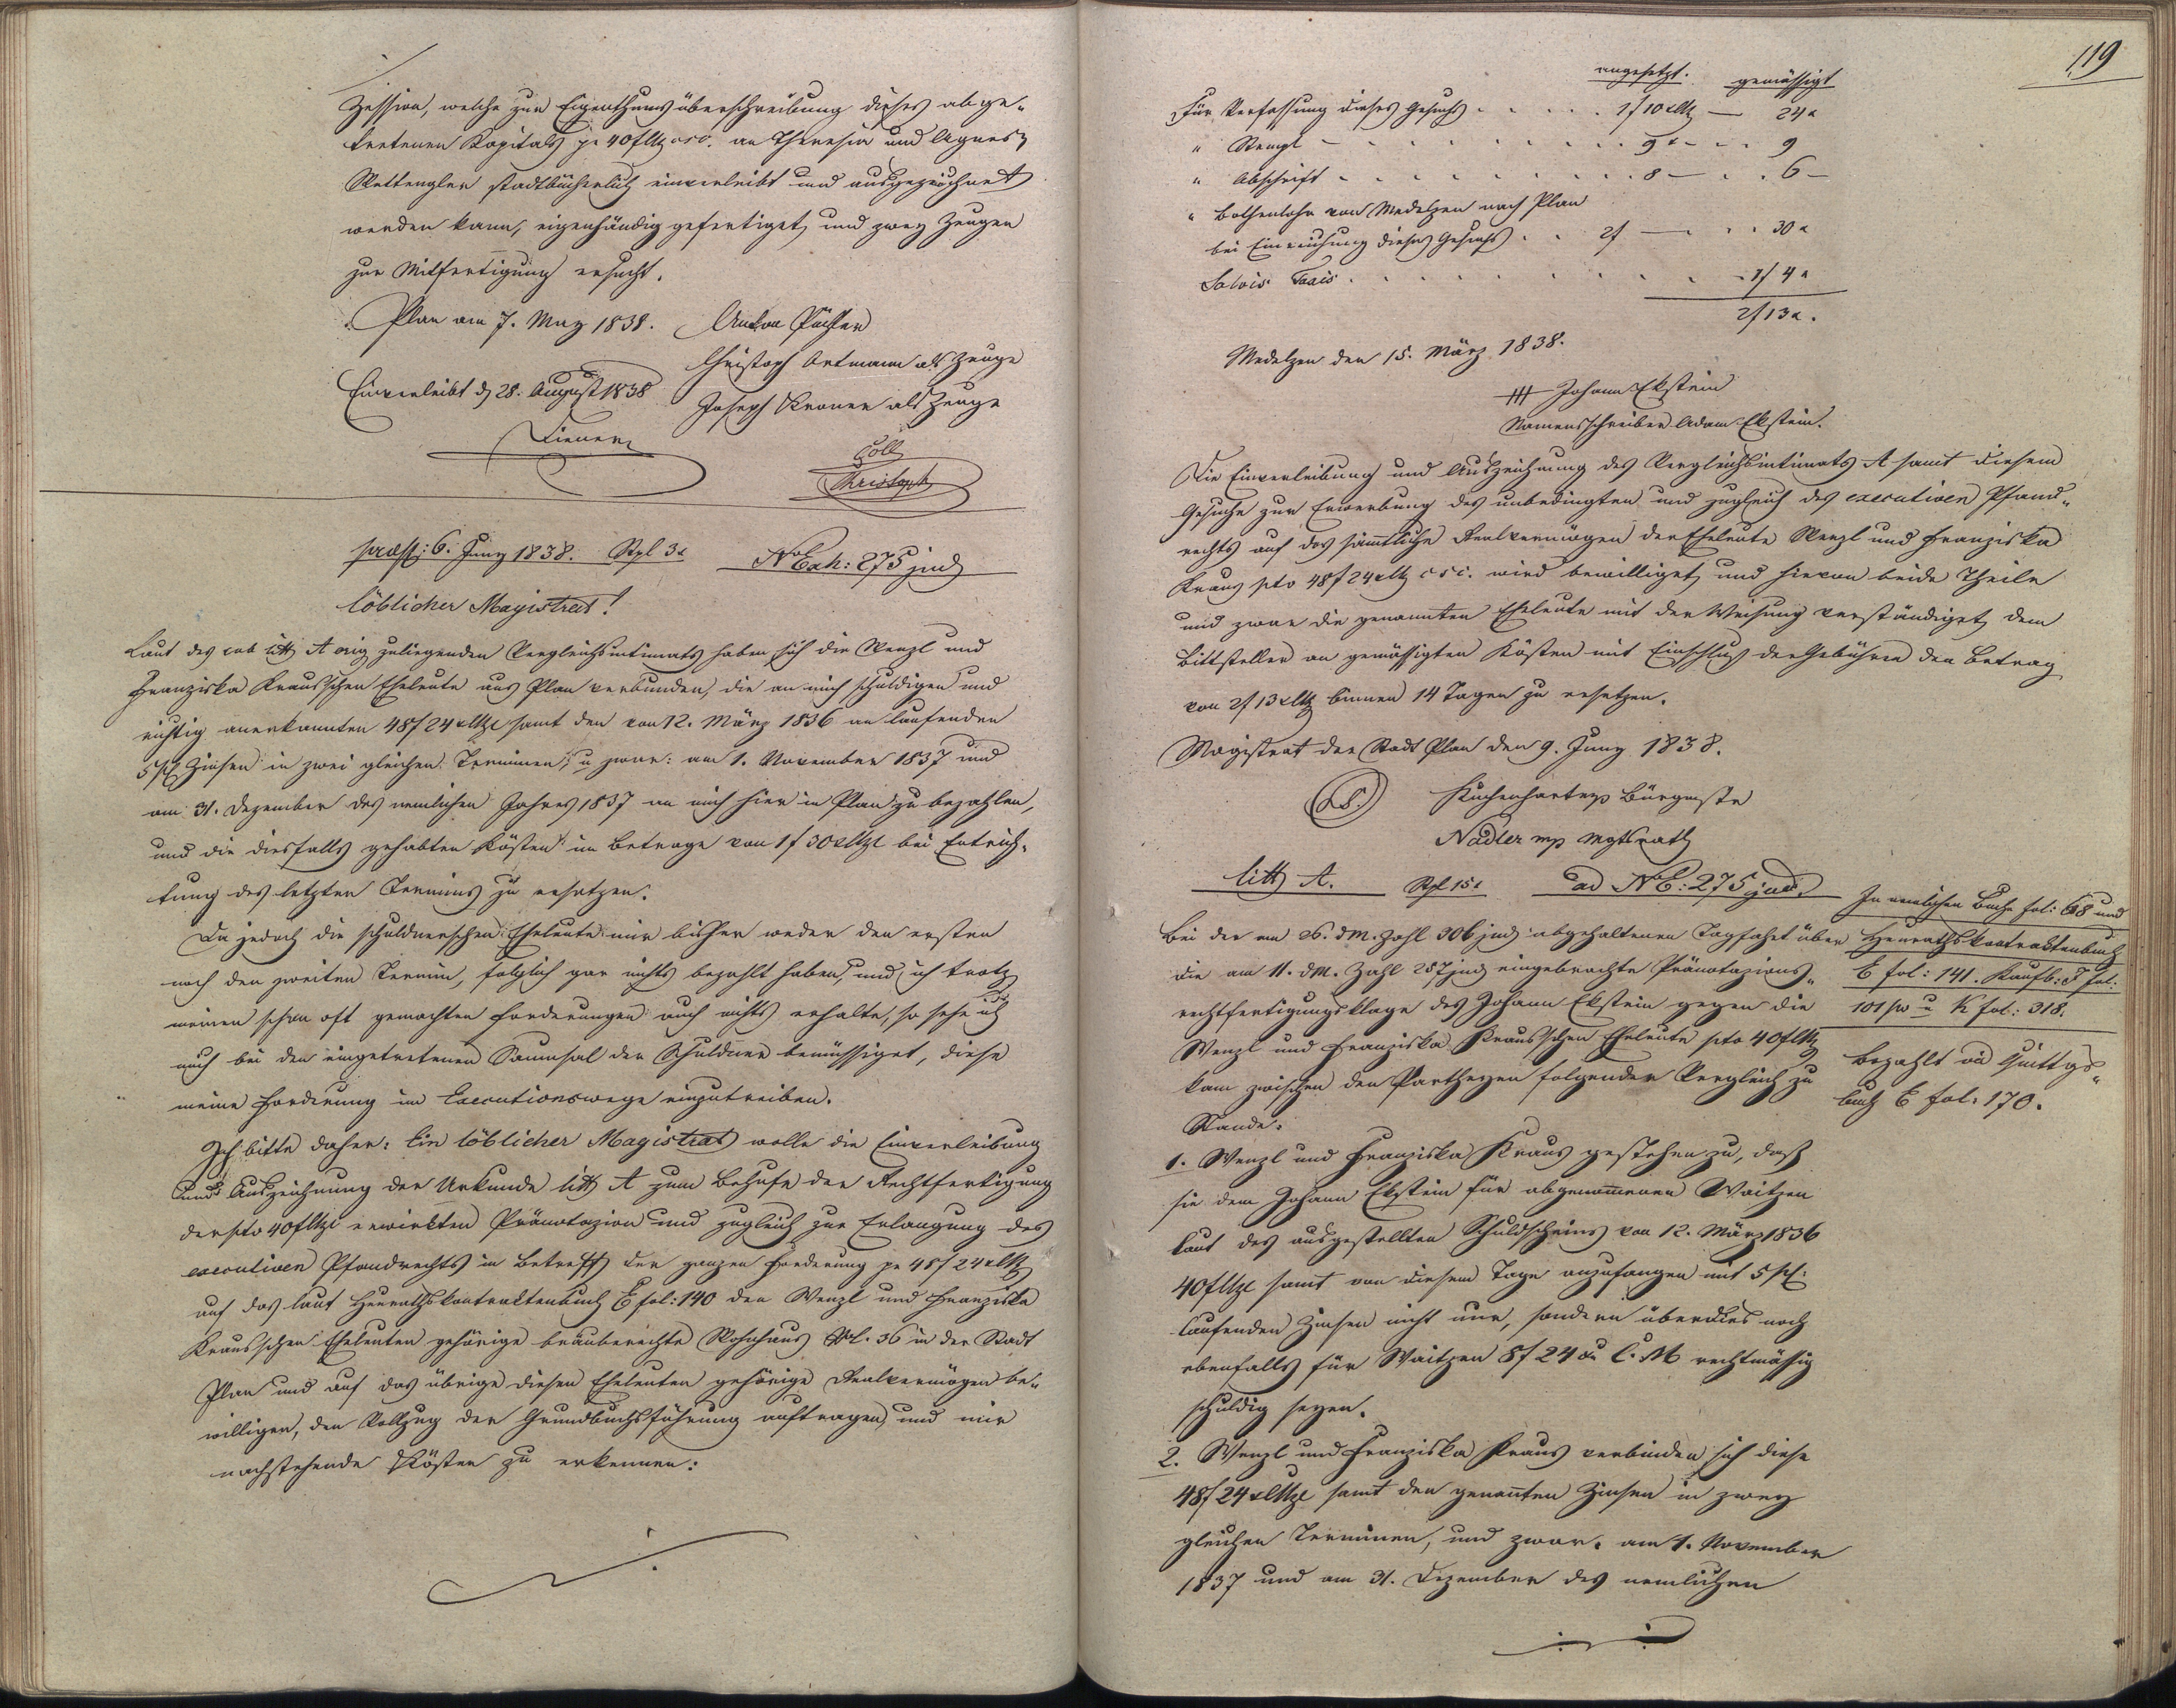 Zession, welche zur Eigenthumsüberschreibung dieses abge-
tretenen Kapitals pr 40f CMz csc. an Theresia und Agnes
stadtbücherlich einverleibt und ausgezeichnet
werden kann, eigenhändig gefertiget, und zwey Zeugen
zur Mitfertigung ersucht.
Plan am 7. May 1838. Anton
Christoph Ortmann als Zeuge
Einverleibt d 28. August 1838
Joseph Kroner als Zeuge
Coll
Christoph
praest: 6. Juny 1838. Stpl 3x N Exh: 275 jud
Löblicher Magistrat!
Laut des sub litt A orig zuliegenden Vergleichsintimats haben sich die Wenzl und
Franziska Kraus'schen Eheleute aus Plan verbunden, die an mich schuldigen und
richtig anerkannten 48f 24x CMze samt den von 12. März 1836 an laufenden
5 pC Zinsen in zwei gleichen Terminen, u zwar: am 1. November 1837 und
am 31. Dezember des nemlichen Jahres 1837 an mich hier in Plan zu bezahlen,
und die diesfalls gehabten Kösten im Betrage von 1f 30x CMze bei Entrich-
tung des letzten Termins zu ersetzen.
Da jedoch die schuldnerschen Eheleute mir bisher weder den ersten
noch den zweiten Termin, folglich gar nichts bezahlt haben, und ich trotz
meinen schon oft gemachten Forderungen auch nichts erhalte, so sehe ich
mich bei der eingetretenen Saumsal der Schuldner bemüssiget, diese
meine Forderung im Executionswege einzutreiben.
Ich bitte daher: Ein löblicher Magistrat wolle die Einverleibung
und Auszeichnung der Urkunde litt A zum Behufe der Rechtfertigung
der pto 40f CMze erwirkten Pränotazion und zugleich zur Erlangung des
executiven Pfandrechts in Betreff der ganzen Forderung pr 48f 24x CMz
auf das laut Heurathskontraktenbuch E fol: 140 den Wenzl und Franziska
Kraus'schen Eheleuten gehörige bräuberechte Wohnhaus N. 36 in der Stadt
Plan und auf das übrige diesen Eheleuten gehörige Realvermögen be-
willigen, den Vollzug der Grundbuchsführung auftragen, und mir
nachstehende Kösten zu erkennen:
119
angesetzt. gemässigt
Für Verfassung dieses Gesuchs . . . . . 1f 10x CMz — 24x
" Stempl . . . . . . . . 9x . . . 9
" Abschrift . . . . . . . . 8 — . . 6 —
" Bothenlohn von Wedelzen nach Plan
bei Einreichung dieses Gesuchs . . 2f — . . . 30x
Salvis Taxis . . . . . . . . 1f 4x
2f 13x.
Medelzen den 15. März 1838.
+++ Johann Ekstein
Namensschreiber Adam Ekstein.
Die Einverleibung und Auszeichnung des Vergleichsintimats A samt diesem
Gesuche zur Erwerbung des unbedingten und zugleich des executiven Pfand-
rechts auf das sämmtliche Realvermögen der Eheleute Wenzl und Franziska
Kraus pto 48f 24x CMz csc. wird bewilliget, und hievon beide Theile
und zwar die genannten Eheleute mit der Weisung verständiget, dem
Bittsteller an gemässigten Kösten mit Einschluß der Gebühren den Betrag
von 2f 13x CMz binnen 14 Tagen zu ersetzen.
Magistrat der Stadt Plan den 9. Juny 1838.
(LS.) Bürgmstr
Nadler mp Mgtsrath
litt A. Stpl 15x ad N E: 275 jud.
Bei der am 26. dM. Zahl 306 jud abgehaltenen Tagfahrt über
die am 11. dM. Zahl 257 jud eingebrachte Pränotazions-
rechtfertigungsklage des Johann Ekstein gegen die
Wenzl und Franziska Kraus'schen Eheleute pto 40f CMz
kam zwischen den Partheyen folgender Vergleich zu
Stande.
1. Wenzl und Franziska Kraus gestehen zu, daß
sie dem Johann Ekstein für abgenommenen Waitzen
laut des ausgestellten Schuldscheins von 12. März 1836
40f CMze samt von diesem Tage anzufangen mit 5 pC.
laufenden Zinsen nicht nur, sondern überdies noch
ebenfalls für Waitzen 8f 24x C. M rechtmässig
schuldig seyen.
2. Wenzl und Franziska Kraus verbinden sich diese
48f 24x CMze samt den genannten Zinsen in zwey
gleichen Terminen, und zwar. am 1. November
1837 und am 31. Dezember des nemlichen
In nemlichen Buche fol: 68 und
Heurathskontraktenbuch
E fol: 141. Kaufb: J fol.
101 u K fol: 318.
Bezahlt vid Quittgs-
buch E fol. 170.